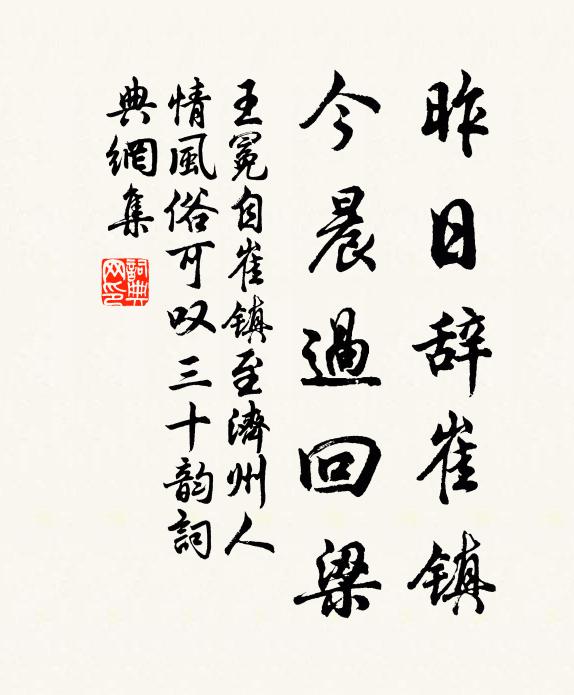 昨日辞崔镇
今晨過回梁
王冕自崔镇至濟州人
情風俗可叹三十韵詞
典網集
詞典
网印